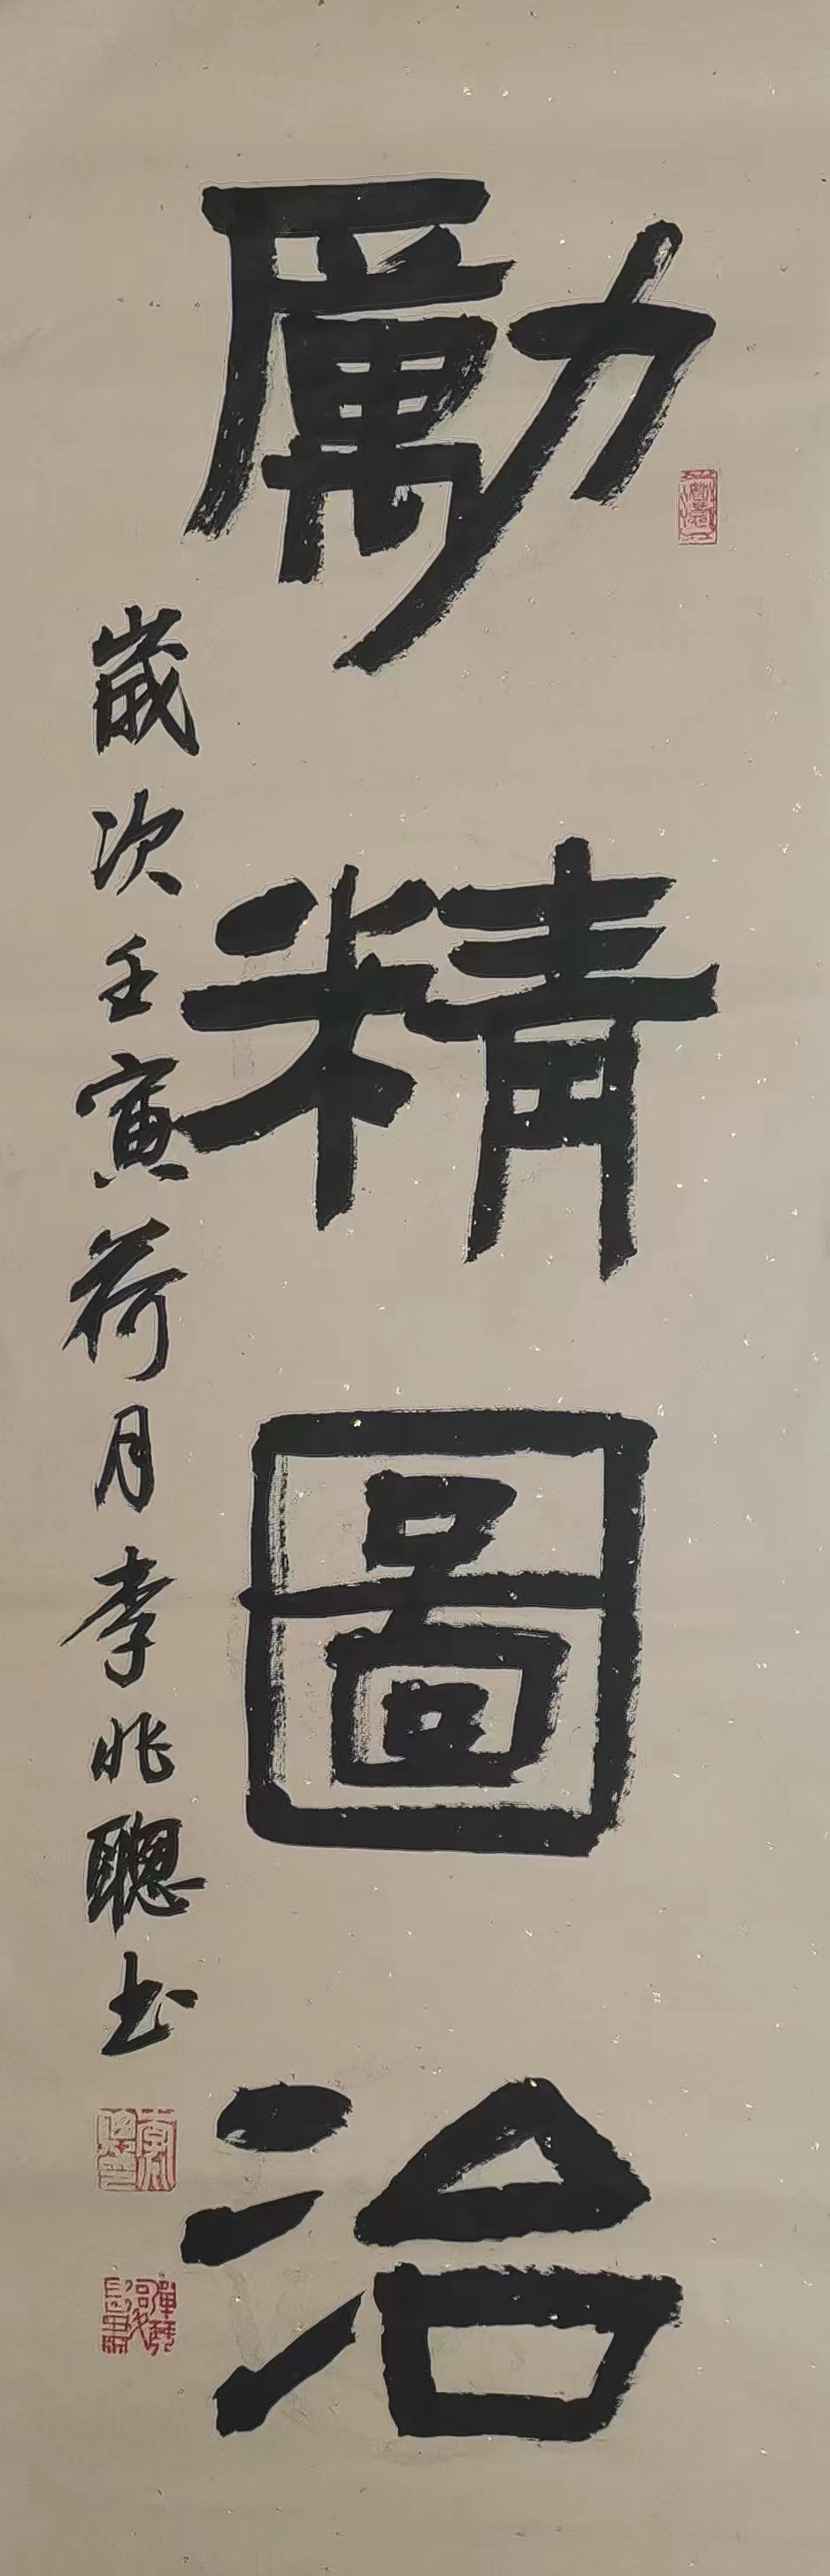 勵精圖治
歲次壬寅荷月李兆聰书